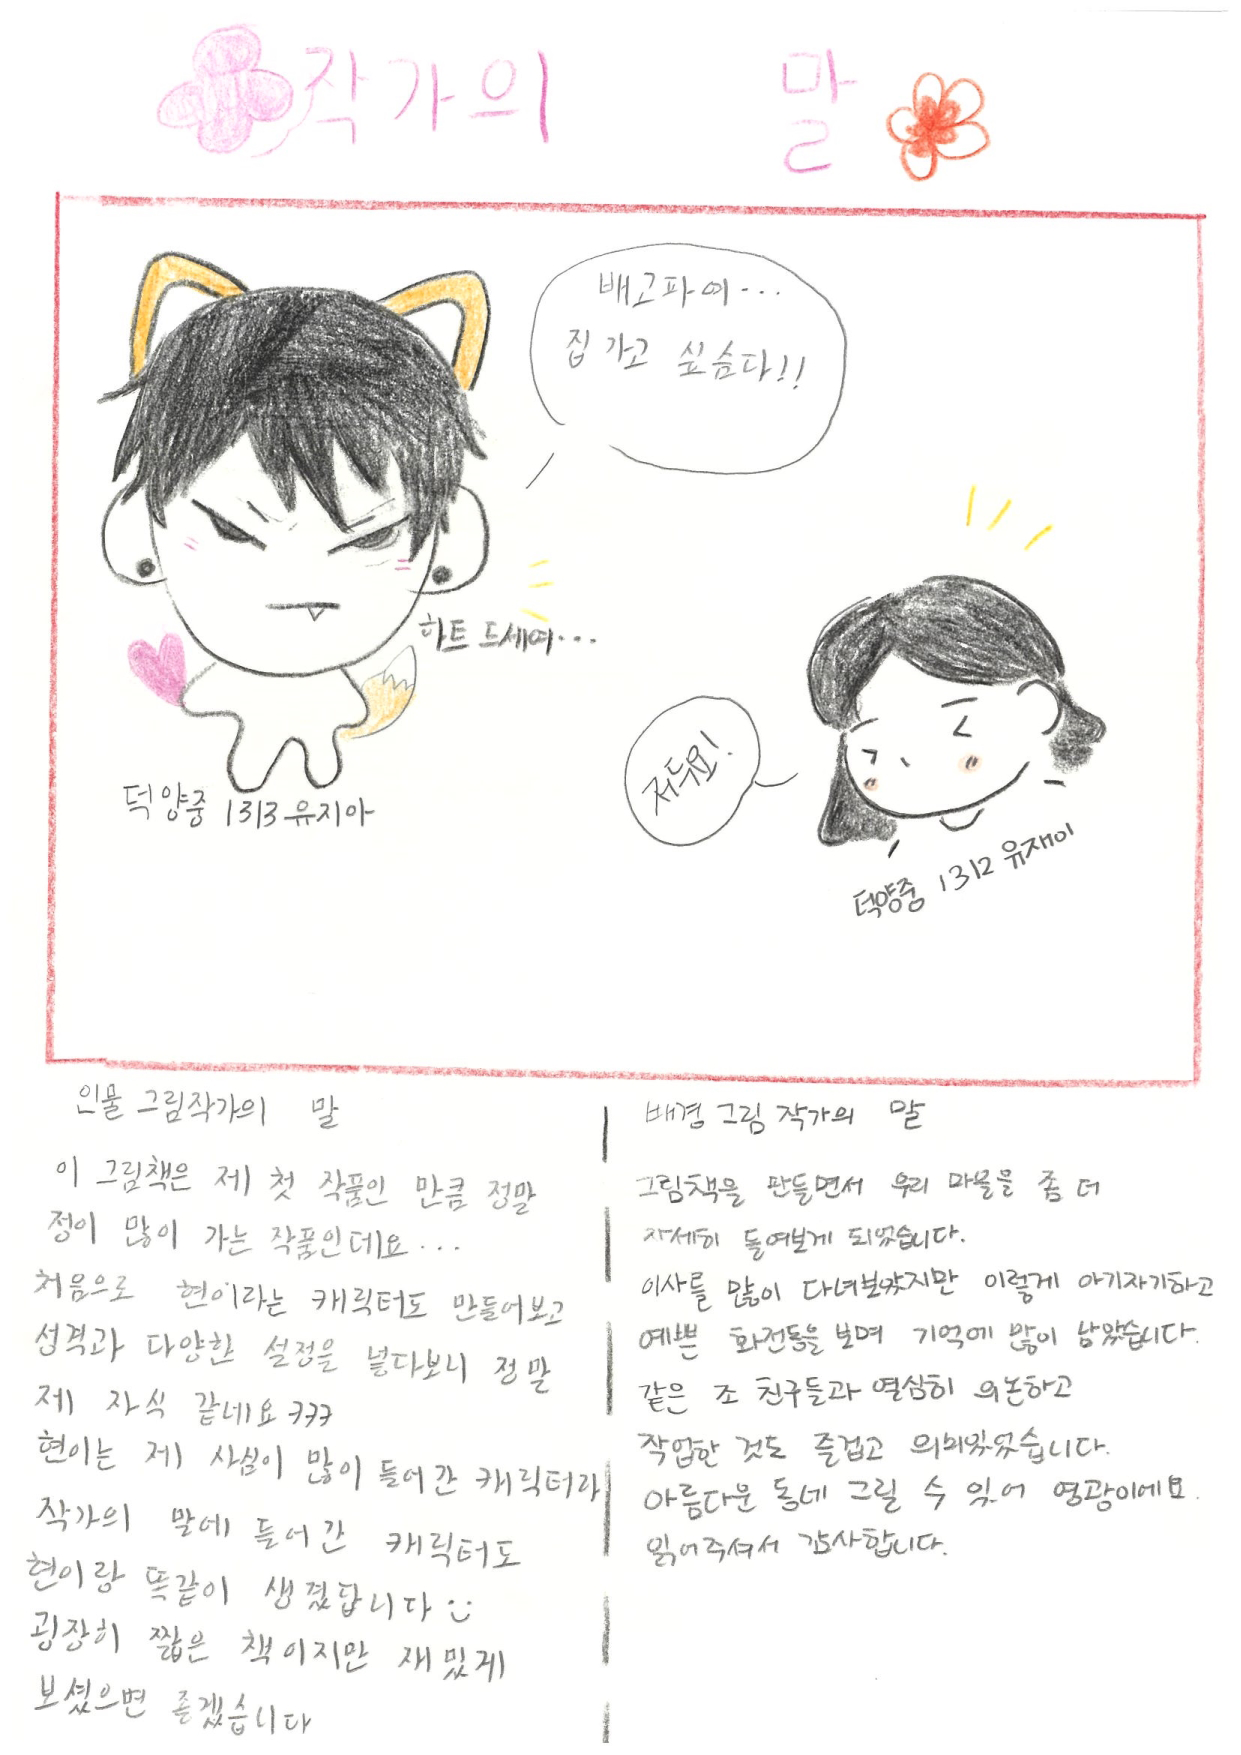 작가의 말
배고파여...
집 가고 싶슴다!!
하트 드세여...
덕양중 1313 유지아
저두요!
덕양중 1312 유재이
인물 그림작가의 말
이 그림책은 제 첫 작품인 만큼 정말
정이 많이 가는 작품인데요...
처음으로 현이라는 캐릭터도 만들어보고
성격과 다양한 설정을 넣다보니 정말
제 자식 같네요 ㅋㅋㅋ
현이는 제 사심이 많이 들어간 캐릭터라
작가의 말에 들어간 캐릭터도
현이랑 똑같이 생겼답니다
굉장히 짧은 책이지만 재밌게
보셨으면 좋겠습니다
배경 그림 작가의 말
그림책을 만들면서 우리 마을을 좀 더
자세히 돌여보게 되었습니다.
이사를 많이 다녀보았지만 이렇게 아기자기하고
예쁜 화전동을 보며 기억에 많이 남았습니다.
같은 조 친구들과 열심히 의논하고
작업한 것도 즐겁고 의미있었습니다.
아름다운 동네 그릴 수 있어 영광이에요.
읽어주셔서 감사합니다.